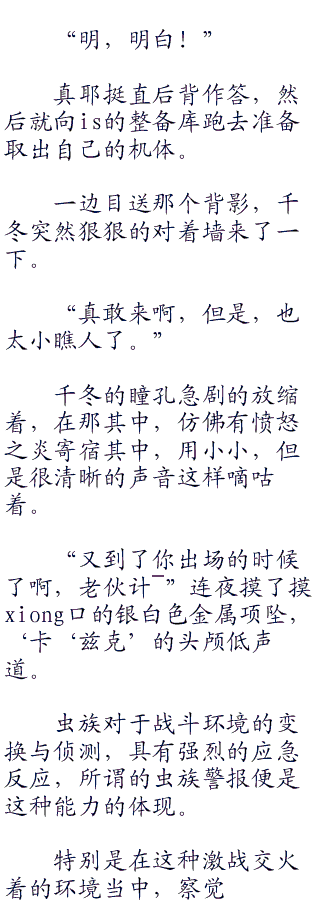 “明，明白！”
真耶挺直后背作答，然
后就向is的整备库跑去准备
取出自己的机体。
一边目送那个背影，千
冬突然狠狠的对着墙来了一
下。
“真敢来啊，但是，也
太小瞧人了。”
千冬的瞳孔急剧的放缩
着，在那其中，仿佛有愤怒
之炎寄宿其中，用小小，但
是很清晰的声音这样嘀咕
着。
“又到了你出场的时候
了啊，老伙计¯”连夜摸了摸
xiong口的银白色金属项坠，
‘卡‘兹克’的头颅低声
道。
虫族对于战斗环境的变
换与侦测，具有强烈的应急
反应，所谓的虫族警报便是
这种能力的体现。
特别是在这种激战交火
着的环境当中，察觉